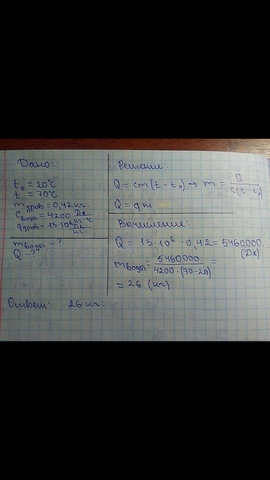 Дано:
t₀ = 20°C
t = 70°C
m дров = 0,42 кг.
c вода = 4200 Дж/кг·°C
q дров = 13·10⁶ Дж/кг.
m воды - ?
Q - ?
Решение:
Q = cm(t - t₀) → m = Q/c(t - t₀)
Q = qm
Вычисление:
Q = 13·10⁶ · 0,42 = 5460000 (Дж)
m воды = 5460000/4200·(70-20) =
= 26 (кг)
Ответ: 26 кг.